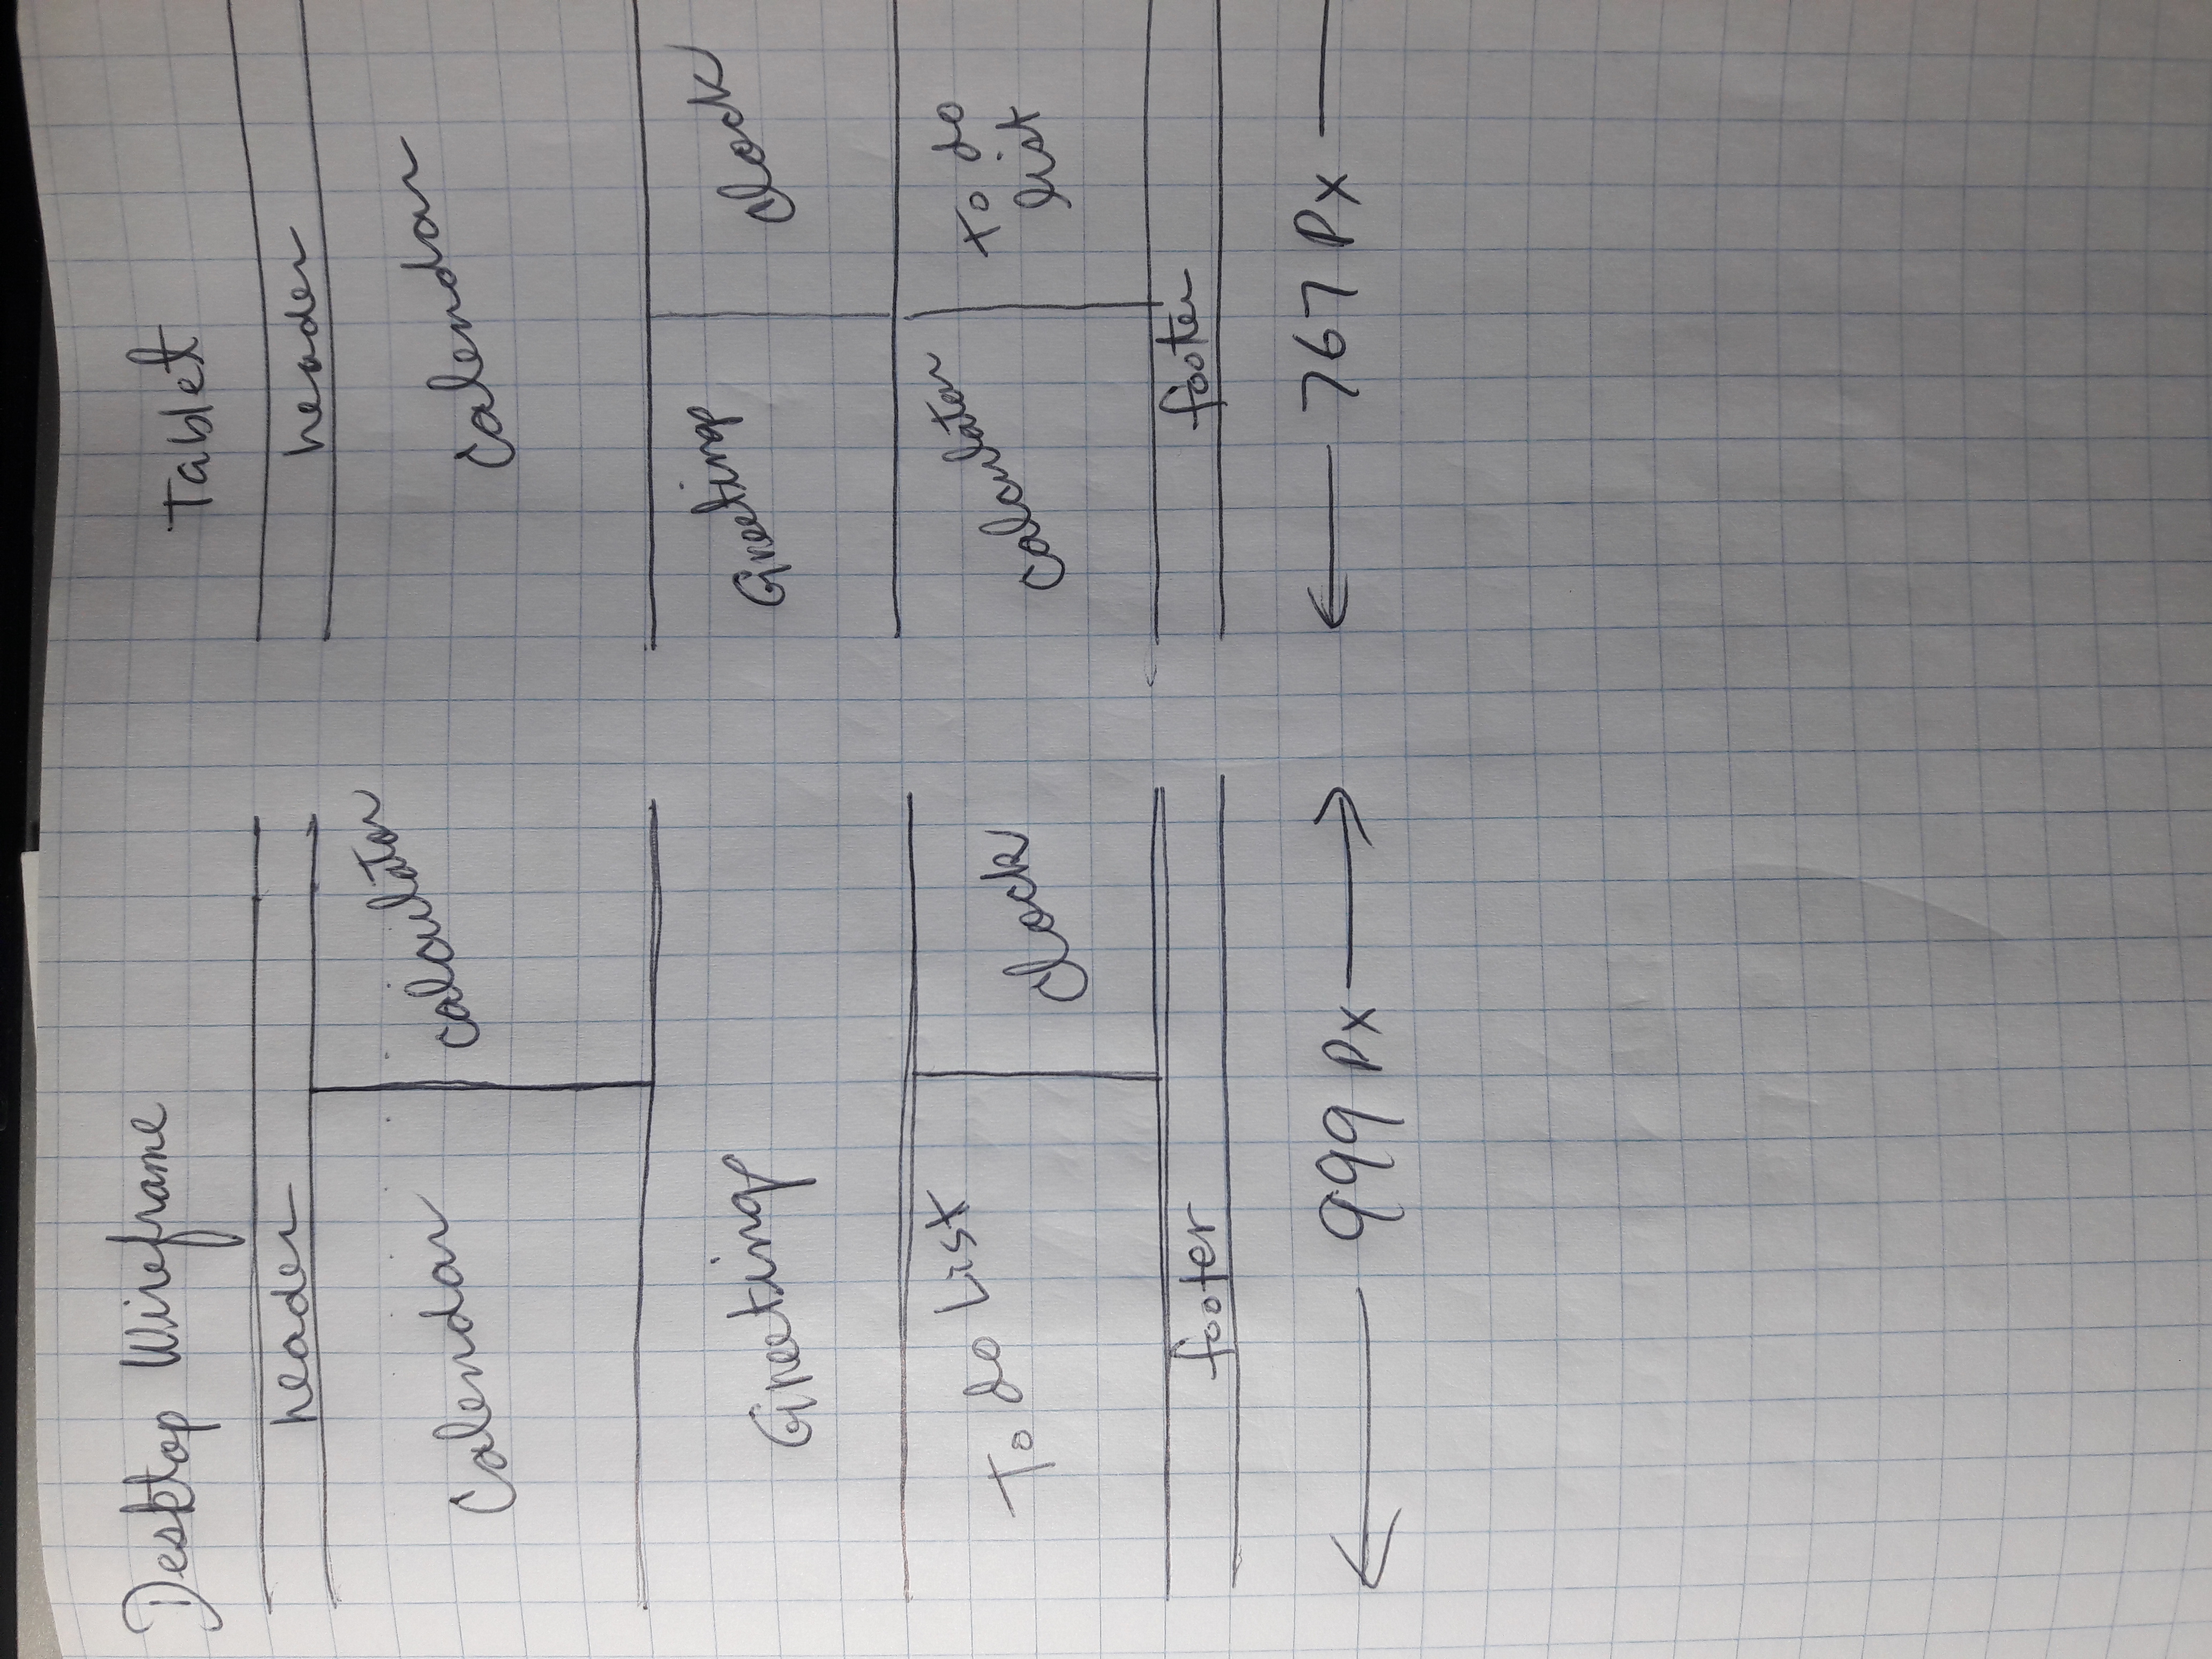 Desktop Wireframe
header
Calendar
calculator
Greetings
To do List
clock
footer
999 Px
Tablet
header
Calendar
Greetings
clock
calculator
to do
list
footer
767 Px